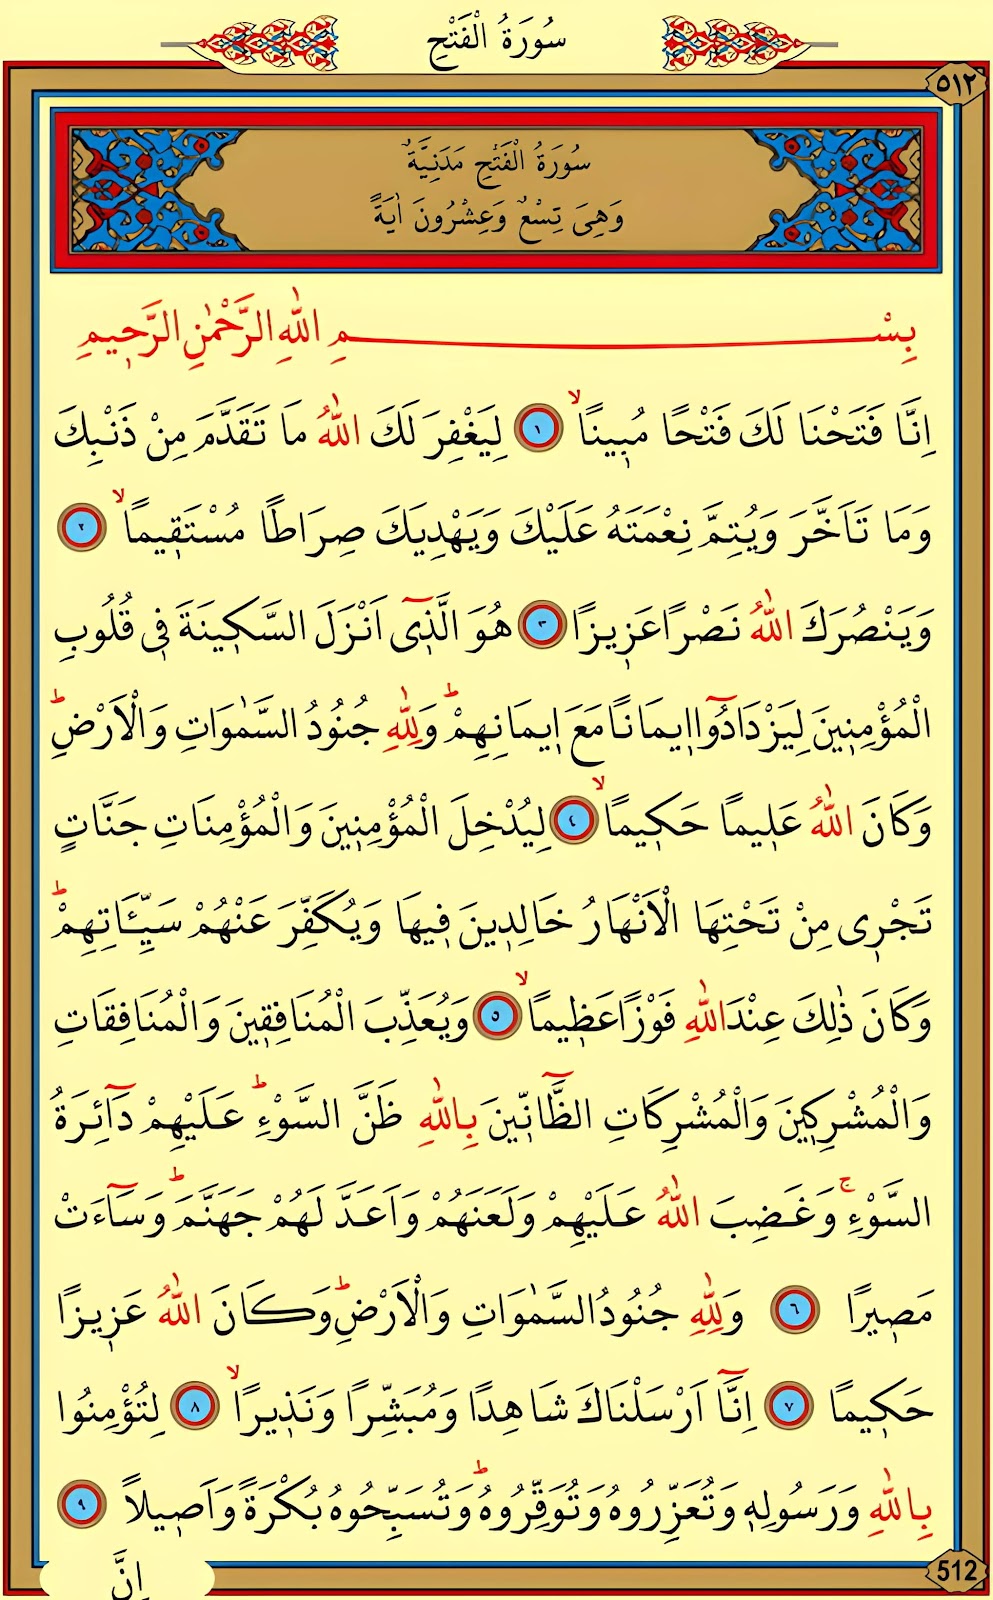 سُورَةُ الْفَتْحِ
٥١٢
سُورَةُ الْفَتْحِ مَدَنِيَّةٌ
وَهِيَ تِسْعٌ وَعِشْرُونَ اٰيَةً
بِسْــــــمِ اللّٰهِ الرَّحْمٰنِ الرَّحِيمِ
اِنَّا فَتَحْنَا لَكَ فَتْحًا مُبِينًاۙ ١ لِيَغْفِرَ لَكَ اللّٰهُ مَا تَقَدَّمَ مِنْ ذَنْبِكَ
وَمَا تَاَخَّرَ وَيُتِمَّ نِعْمَتَهُ عَلَيْكَ وَيَهْدِيَكَ صِرَاطًا مُسْتَقِيمًاۙ ٢
وَيَنْصُرَكَ اللّٰهُ نَصْرًا عَزِيزًا ٣ هُوَ الَّذِٓى اَنْزَلَ السَّكِينَةَ فِى قُلُوبِ
الْمُؤْمِنِينَ لِيَزْدَادُٓوا اِيمَانًا مَعَ اِيمَانِهِمْۜ وَلِلّٰهِ جُنُودُ السَّمٰوَاتِ وَالْاَرْضِۜ
وَكَانَ اللّٰهُ عَلِيمًا حَكِيمًاۙ ٤ لِيُدْخِلَ الْمُؤْمِنِينَ وَالْمُؤْمِنَاتِ جَنَّاتٍ
تَجْرِى مِنْ تَحْتِهَا الْاَنْهَارُ خَالِدِينَ فِيهَا وَيُكَفِّرَ عَنْهُمْ سَيِّـَٔاتِهِمْۜ
وَكَانَ ذٰلِكَ عِنْدَ اللّٰهِ فَوْزًا عَظِيمًاۙ ٥ وَيُعَذِّبَ الْمُنَافِقِينَ وَالْمُنَافِقَاتِ
وَالْمُشْرِكِينَ وَالْمُشْرِكَاتِ الظَّٓانِّينَ بِاللّٰهِ ظَنَّ السَّوْءِۜ عَلَيْهِمْ دَٓائِرَةُ
السَّوْءِۚ وَغَضِبَ اللّٰهُ عَلَيْهِمْ وَلَعَنَهُمْ وَاَعَدَّ لَهُمْ جَهَنَّمَۜ وَسَٓاءَتْ
مَصِيرًا ٦ وَلِلّٰهِ جُنُودُ السَّمٰوَاتِ وَالْاَرْضِۜ وَكَانَ اللّٰهُ عَزِيزًا
حَكِيمًا ٧ اِنَّٓا اَرْسَلْنَاكَ شَاهِدًا وَمُبَشِّرًا وَنَذِيرًاۙ ٨ لِتُؤْمِنُوا
بِاللّٰهِ وَرَسُولِهِ وَتُعَزِّرُوهُ وَتُوَقِّرُوهُۜ وَتُسَبِّحُوهُ بُكْرَةً وَاَصِيلًا ٩
اِنَّ
512